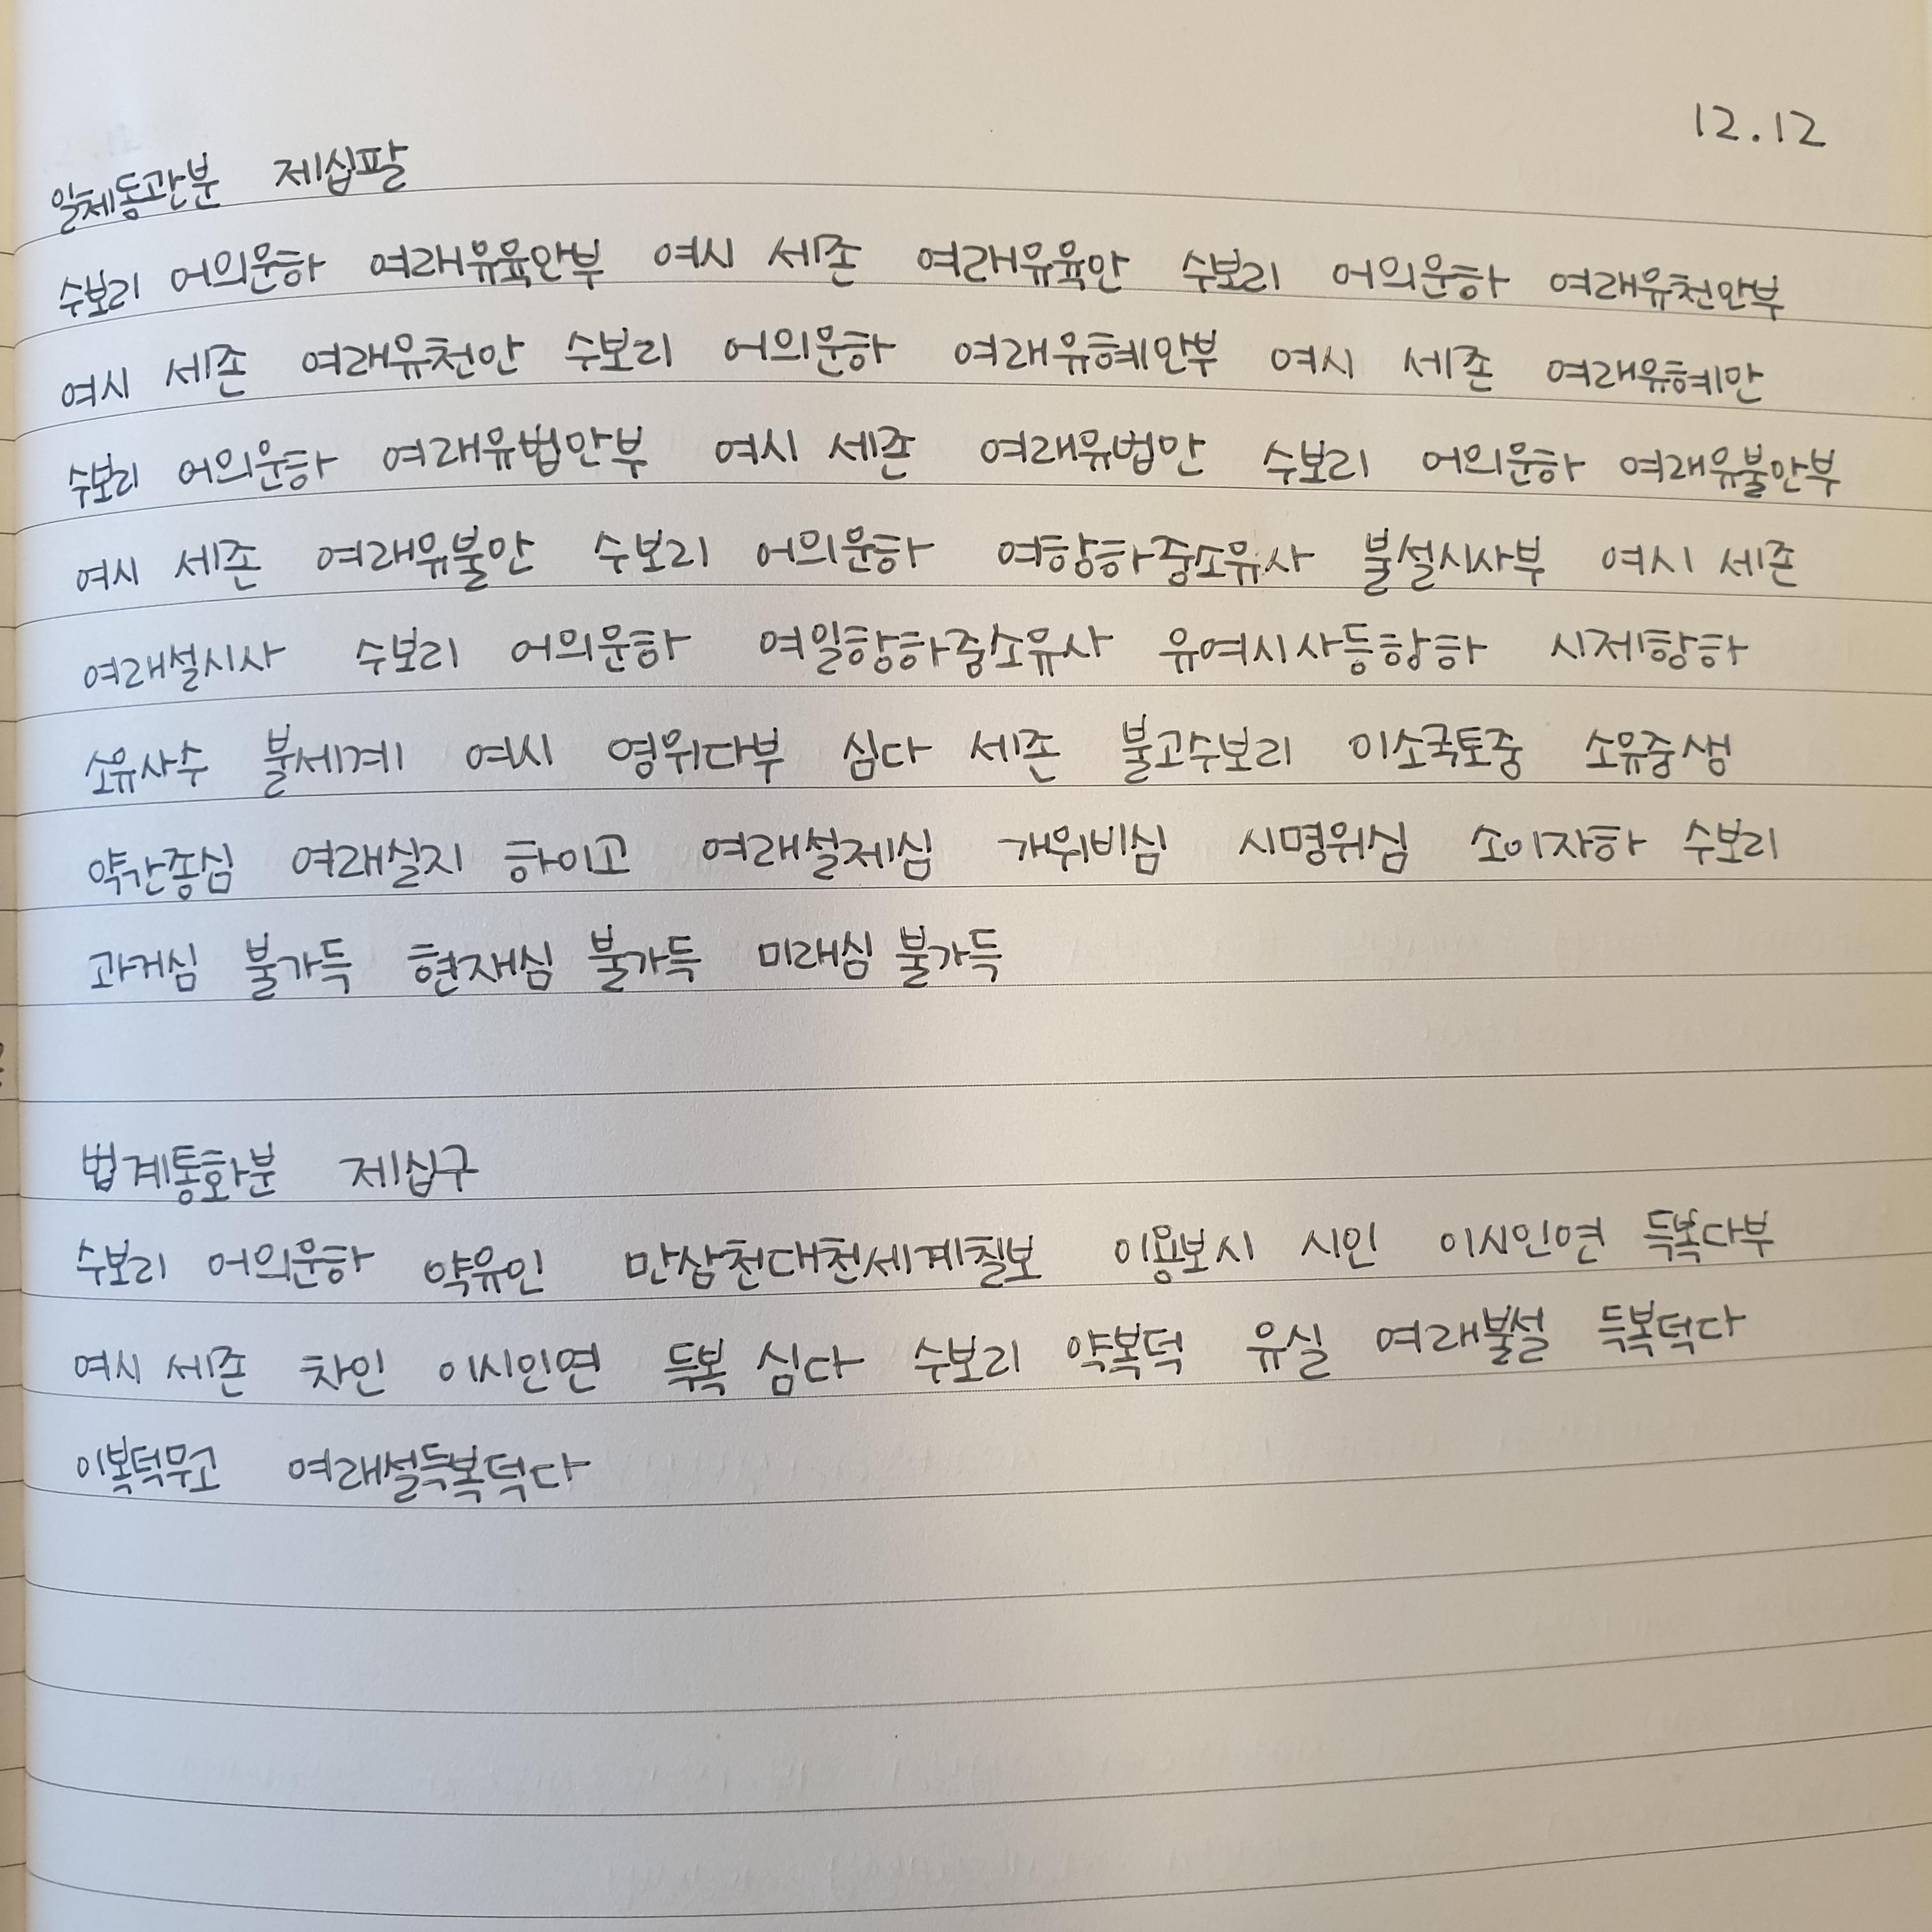 12.12
일체동관분 제십팔
수보리 어의운하 여래유육안부 여시 세존 여래유육안 수보리 어의운하 여래유천안부
여시 세존 여래유천안 수보리 어의운하 여래유혜안부 여시 세존 여래유혜안
수보리 어의운하 여래유법안부 여시 세존 여래유법안 수보리 어의운하 여래유불안부
여시 세존 여래유불안 수보리 어의운하 여항하중소유사 불설시사부 여시 세존
여래설시사 수보리 어의운하 여일항하중소유사 유여시사등항하 시제항하
소유사수 불세계 여시 영위다부 심다 세존 불고수보리 이소국토중 소유중생
약간종심 여래실지 하이고 여래설제심 개위비심 시명위심 소이자하 수보리
과거심 불가득 현재심 불가득 미래심 불가득
법계통화분 제십구
수보리 어의운하 약유인 만삼천대천세계칠보 이용보시 시인 이시인연 득복다부
여시 세존 차인 이시인연 득복 심다 수보리 약복덕 유실 여래불설 득복덕다
이복덕무고 여래설득복덕다